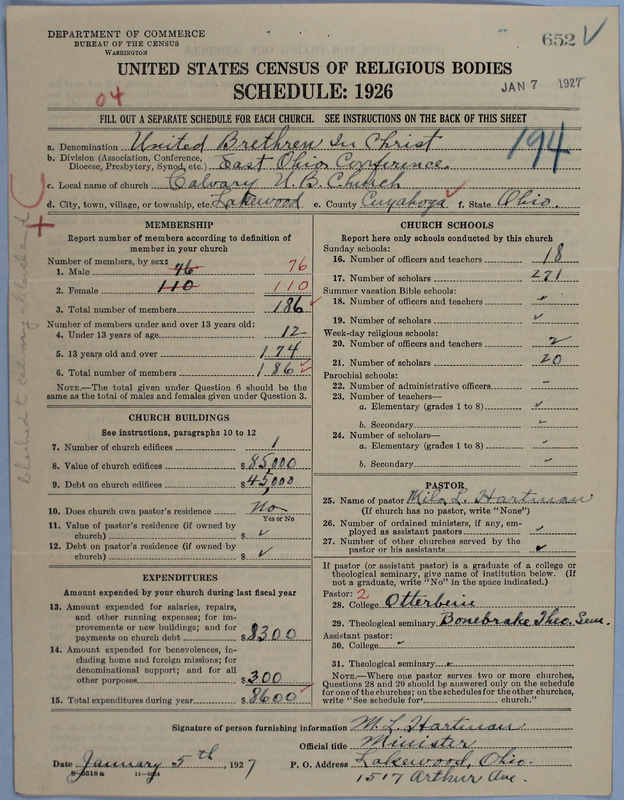 DEPARTMENT OF COMMERCE
BUREAU OF THE CENSUS
WASHINGTON
652
UNITED STATES CENSUS OF RELIGIOUS BODIES
SCHEDULE: 1926
JAN 7 1927
04
FILL OUT A SEPARATE SCHEDULE FOR EACH CHURCH. SEE INSTRUCTIONS ON THE BACK OF THIS SHEET
194
a. Denomination United Brethren In Christ
b. Division (Association, Conference, Diocese, Presbytery, Synod, etc.) East Ohio Conference.
c. Local name of church Calvary U.B. Church
d. City, town, village, or township, etc. Lakewood e. County Cuyahoga f. State Ohio.
MEMBERSHIP
Report number of members according to definition of
member in your church
Number of members, by sex:
1. Male 76 76
2. Female 110 110
3. Total number of members 186
Number of members under and over 13 years old:
4. Under 13 years of age 12
5. 13 years old and over 174
6. Total number of members 186
NOTE.—The total given under Question 6 should be
same as the total of males and females given under Question 3.
CHURCH BUILDINGS
See instructions, paragraphs 10 to 12
7. Number of church edifices 1
8. Value of church edifices $85,000
9. Debt on church edifices $45,000
10. Does church own pastor's residence No
Yes or No
11. Value of pastor's residence (if owned by
church) $ ✓
12. Debt on pastor's residence (if owned by
church) $ ✓
EXPENDITURES
Amount expended by your church during last fiscal year
13. Amount expended for salaries, repairs,
and other running expenses; for im-
provements or new buildings; and for
payments on church debt $8300
14. Amount expended for benevolences, in-
cluding home and foreign missions; for
denominational support; and for all
other purposes $300
15. Total expenditures during year $8600
CHURCH SCHOOLS
Report here only schools conducted by this church
Sunday schools:
16. Number of officers and teachers 18
17. Number of scholars 271
Summer vacation Bible schools:
18. Number of officers and teachers ✓
19. Number of scholars ✓
Week-day religious schools:
20. Number of officers and teachers 2
21. Number of scholars 20
Parochial schools:
22. Number of administrative officers -
23. Number of teachers—
a. Elementary (grades 1 to 8) ✓
b. Secondary -
24. Number of scholars—
a. Elementary (grades 1 to 8) -
b. Secondary -
PASTOR
25. Name of pastor Milo L. Hartman
(If church has no pastor, write "None")
26. Number of ordained ministers, if any, em-
ployed as assistant pastors ✓
27. Number of other churches served by the
pastor or his assistants ✓
If pastor (or assistant pastor) is a graduate of a college or
theological seminary, give name of institution below. (If
not a graduate, write "No" in the space indicated.)
Pastor: 2
28. College Otterbein
29. Theological seminary Bonebrake Theo. Sem.
Assistant pastor:
30. College ✓
31. Theological seminary
NOTE.—Where one pastor serves two or more churches,
Questions 28 and 29 should be answered only on the schedule
for one of the churches; on the schedules for the other churches,
write "See schedule for church."
Signature of person furnishing information M. L. Hartman
Official title Minister
Date January 5th, 1927 P. O. Address Lakewood, Ohio.
8—5518 a 11—9324 1517 Arthur Ave.